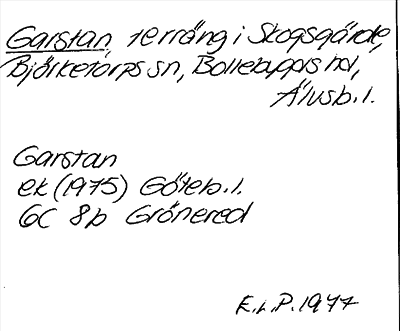 Garstan, terräng i Skogsgärde,
Björketorps sn, Bollebygds hd,
Älvsb. l.
Garstan
ek (1975) Göteb. l.
6C 8b Grönered
E.L.P. 1977